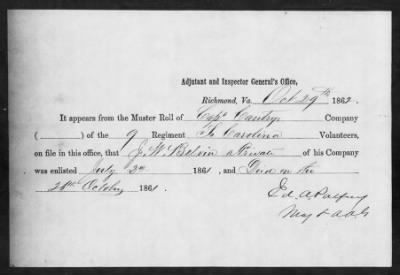 Adjutant and Inspector General's Office,
Richmond, Va. Oct 29th 1862.
It appears from the Muster Roll of Capt Cantey Company
( ) of the 9 Regiment So Carolina Volunteers,
on file in this office, that J. W. Belvin a Private of his Company
was enlisted July 2d 1861, and Died on the
28th October 1861.
Ed. A. Palfrey
Maj & AAG